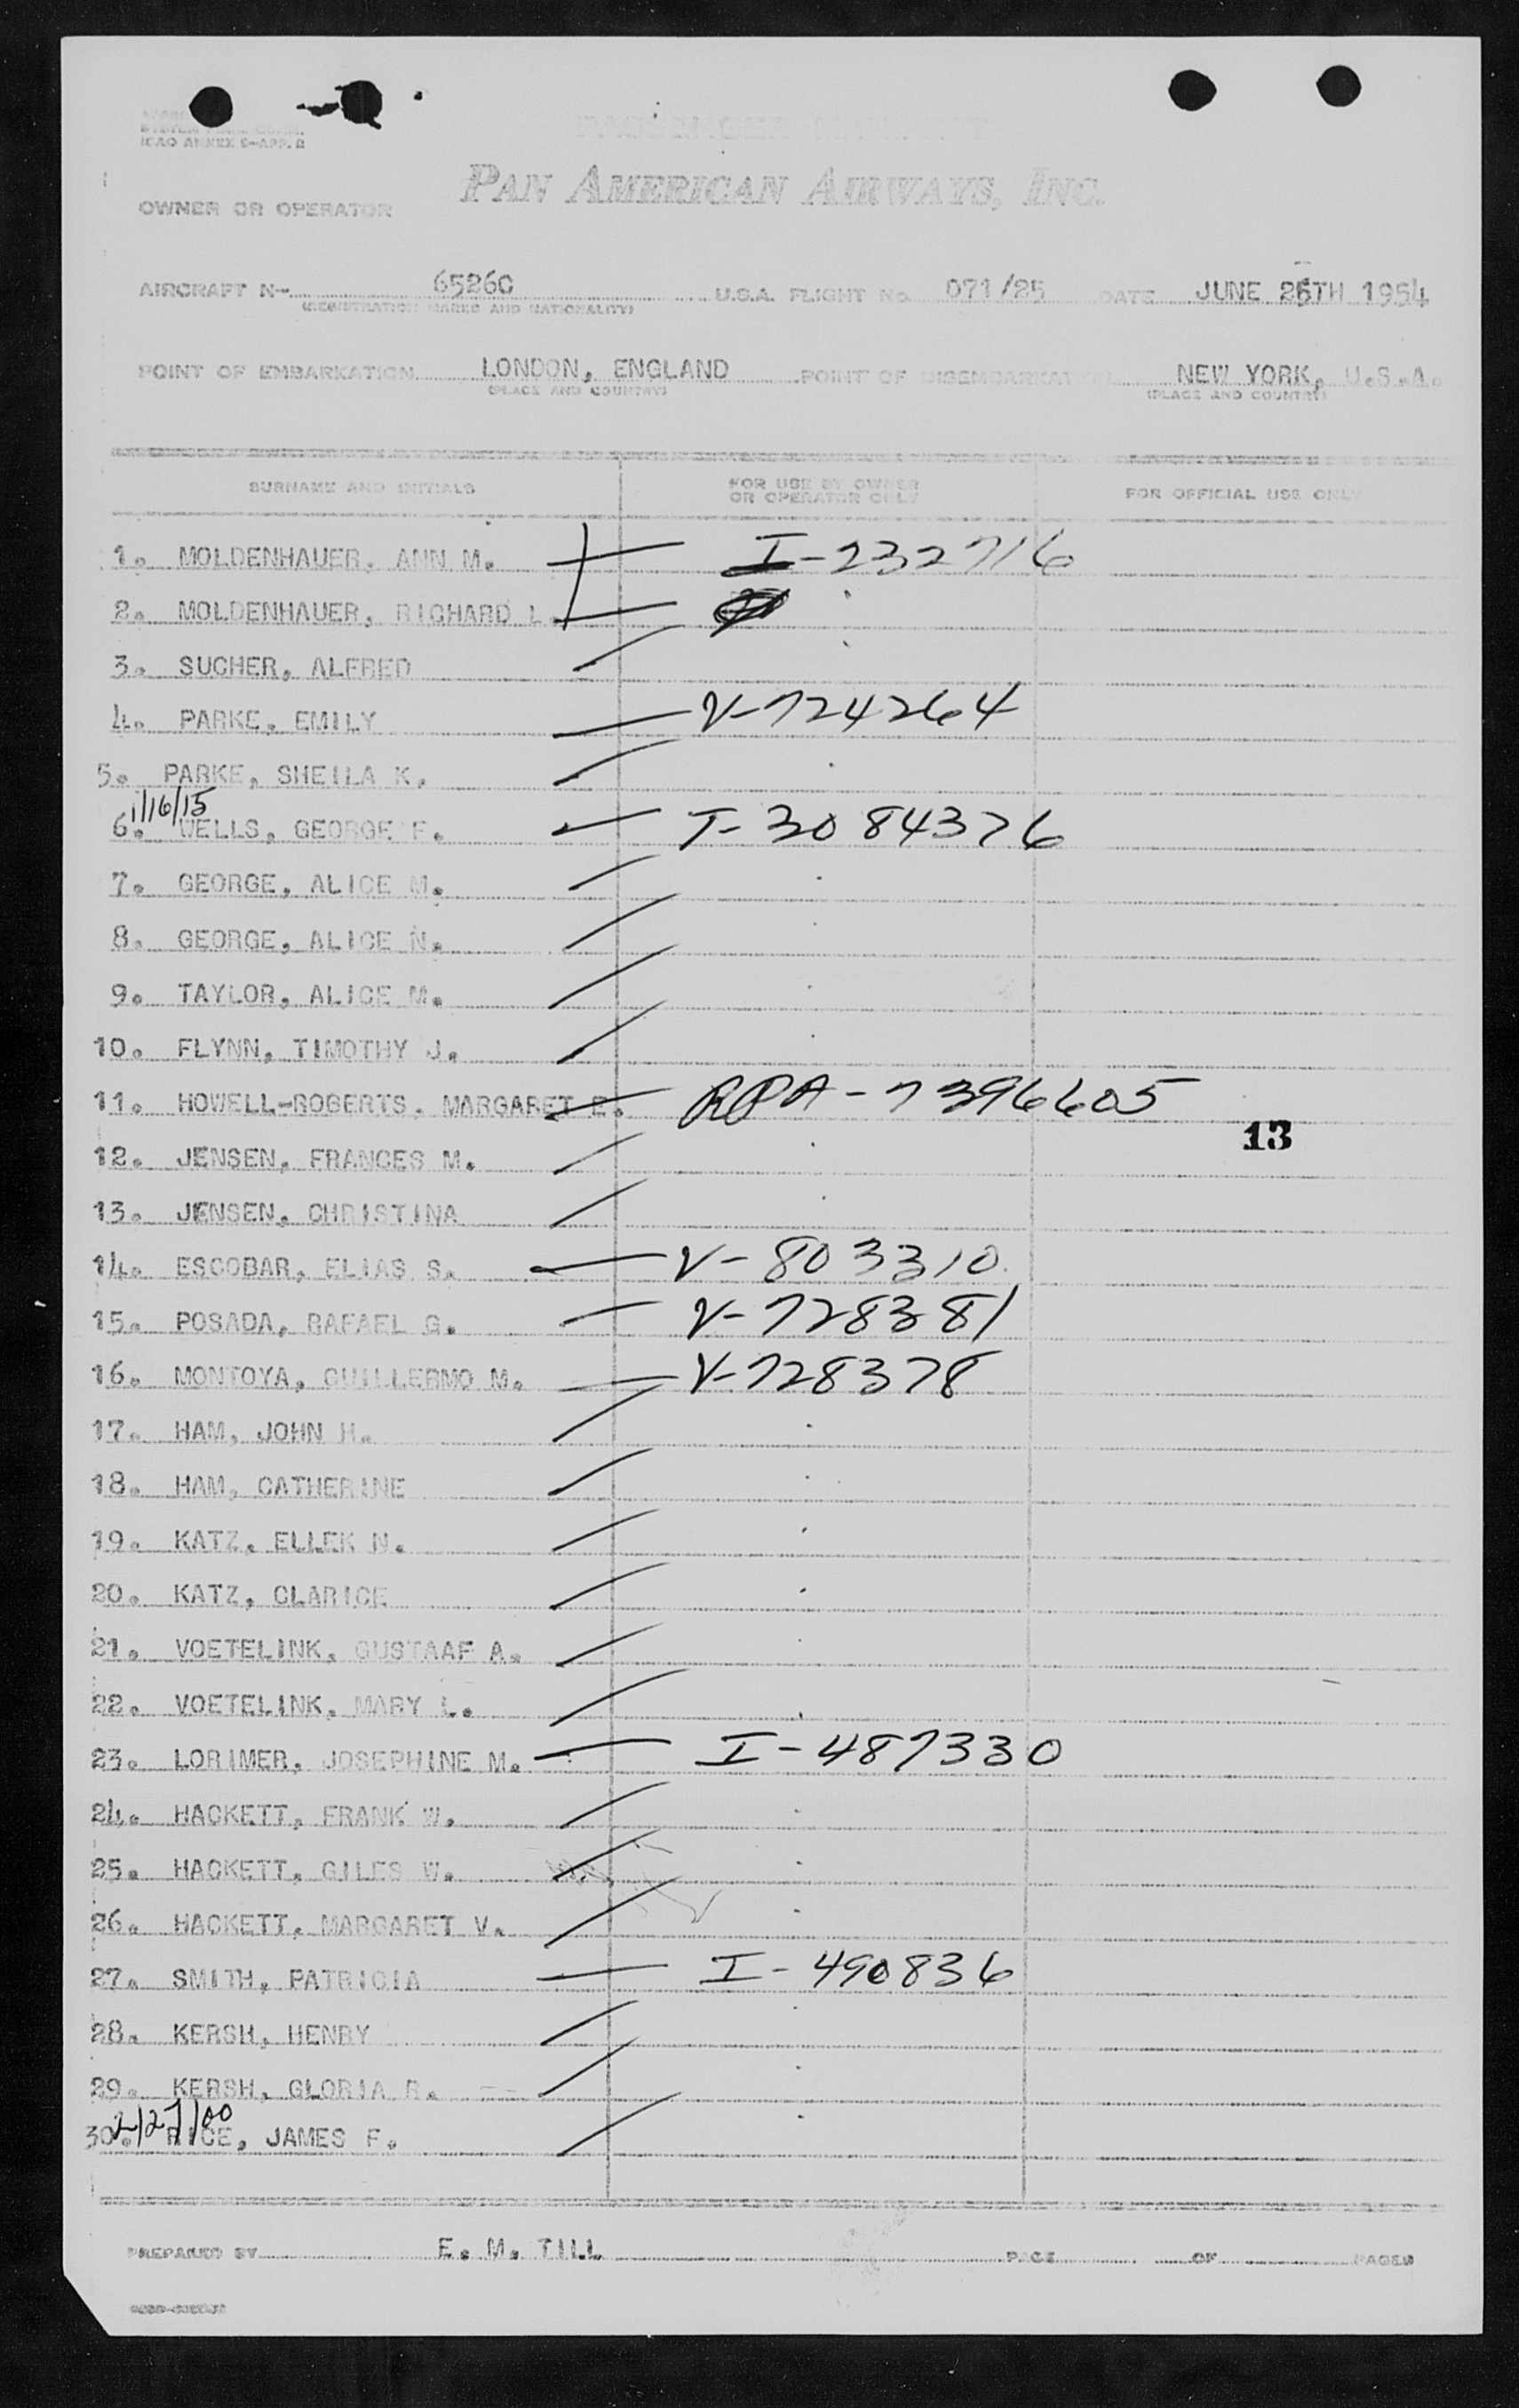 ICAO ANNEX 9-APP. 2
PAN AMERICAN AIRWAYS, INC.
OWNER OR OPERATOR
AIRCRAFT N- 6526C U.S.A. FLIGHT No. 071/25 DATE JUNE 26TH 1954
(REGISTRATION MARKS AND NATIONALITY)
POINT OF EMBARKATION LONDON, ENGLAND POINT OF DISEMBARKATION NEW YORK, U.S.A.
(PLACE AND COUNTRY) (PLACE AND COUNTRY)
SURNAME AND INITIALS FOR USE BY OWNER OR OPERATOR ONLY FOR OFFICIAL USE ONLY
1. MOLDENHAUER, ANN M. I-232716
2. MOLDENHAUER, RICHARD L.
3. SUCHER, ALFRED
4. PARKE, EMILY V-724264
5. PARKE, SHEILA K.
1/16/15
6. WELLS, GEORGE F. T-3084376
7. GEORGE, ALICE M.
8. GEORGE, ALICE N.
9. TAYLOR, ALICE M.
10. FLYNN, TIMOTHY J.
11. HOWELL-ROBERTS, MARGARET E. RPA-7396605
13
12. JENSEN, FRANCES M.
13. JENSEN, CHRISTINA
14. ESCOBAR, ELIAS S. V-803310
15. POSADA, RAFAEL G. V-728381
16. MONTOYA, GUILLERMO M. V-728378
17. HAM, JOHN H.
18. HAM, CATHERINE
19. KATZ, ELLEK N.
20. KATZ, CLARICE
21. VOETELINK, GUSTAAF A.
22. VOETELINK, MARY L.
23. LORIMER, JOSEPHINE M. I-487330
24. HACKETT, FRANK W.
25. HACKETT, GILES W.
26. HACKETT, MARGARET V.
27. SMITH, PATRICIA I-490836
28. KERSH, HENRY
29. KERSH, GLORIA R.
2/27/00
30. RICE, JAMES F.
PREPARED BY E. M. TILL PAGE OF PAGES